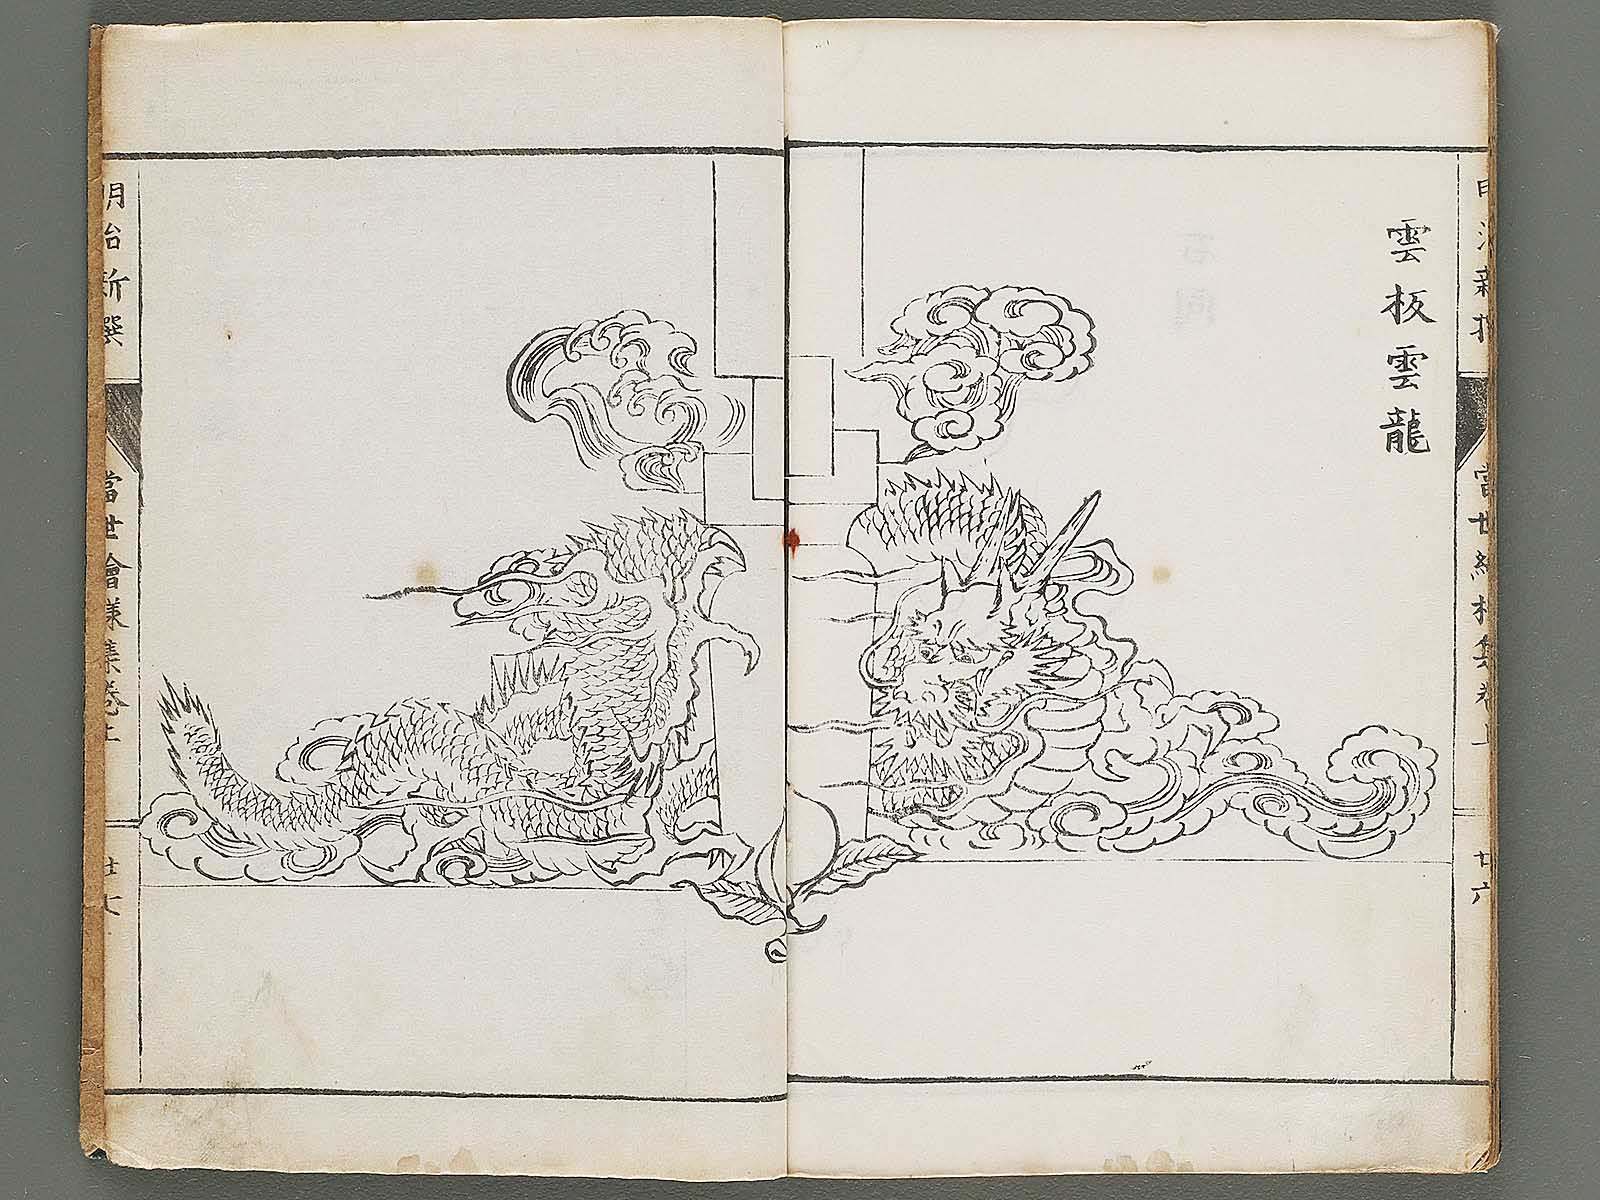 雲板雲龍
明治新撰
當世繪樣集卷上
廿六
明治新撰
當世繪樣集卷上
廿七